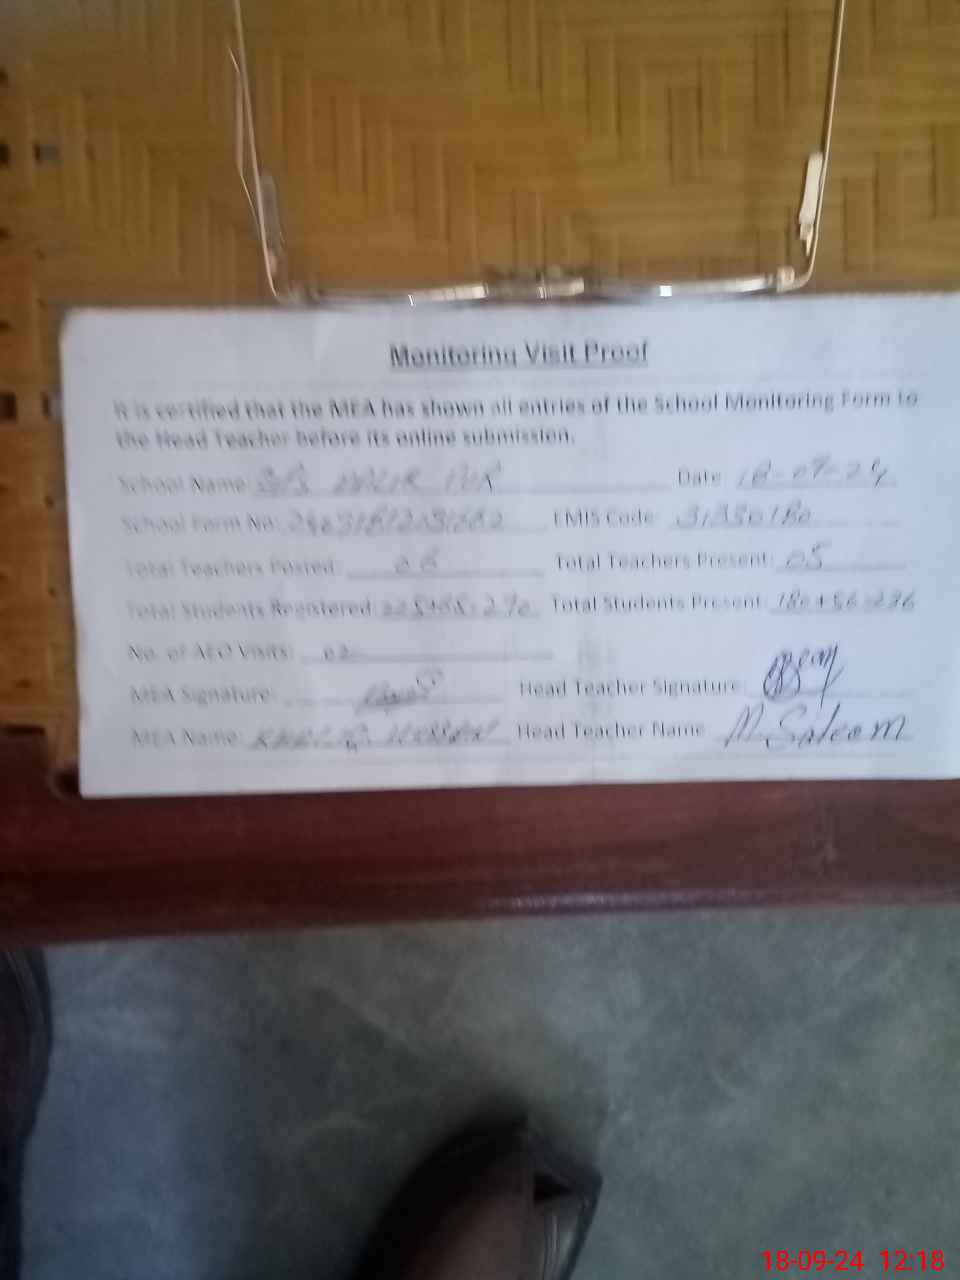 Monitoring Visit Proof
It is certified that the MEA has shown all entries of the School Monitoring Form to
the Head Teacher before its online submission.
School Name: PUR Date: 18-09-24
School Form No: EMIS Code: 31330180
Total Teachers Posted: 06 Total Teachers Present: 05
Total Students Registered: 225+65=290 Total Students Present: 180+56=236
No. of AEO Visits: 02
MEA Signature: Head Teacher Signature:
MEA Name: Head Teacher Name M. Saleem
18-09-24 12:18